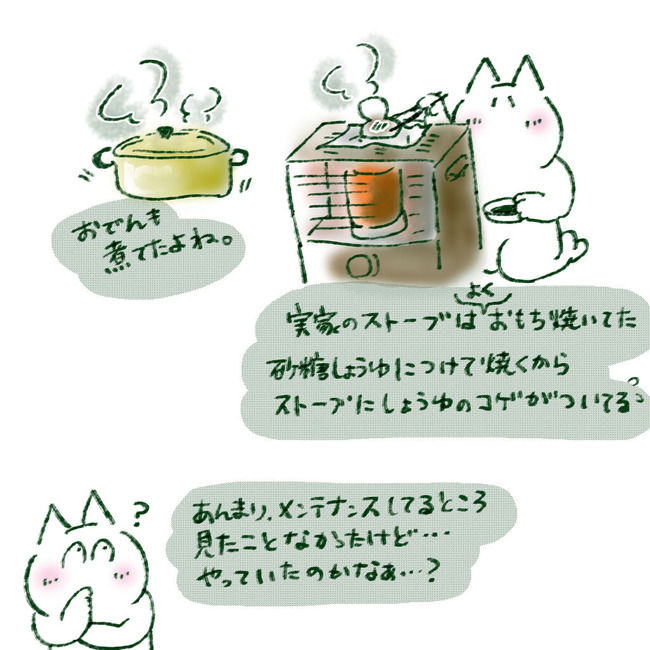 おでんも
煮てたよね。
実家のストーブはよくおもち焼いてた
砂糖しょうゆにつけて焼くから
ストーブにしょうゆのコゲがついてる。
?
あんまり、メンテナンスしてるところ
見たことなかったけど…
やっていたのかなぁ…?